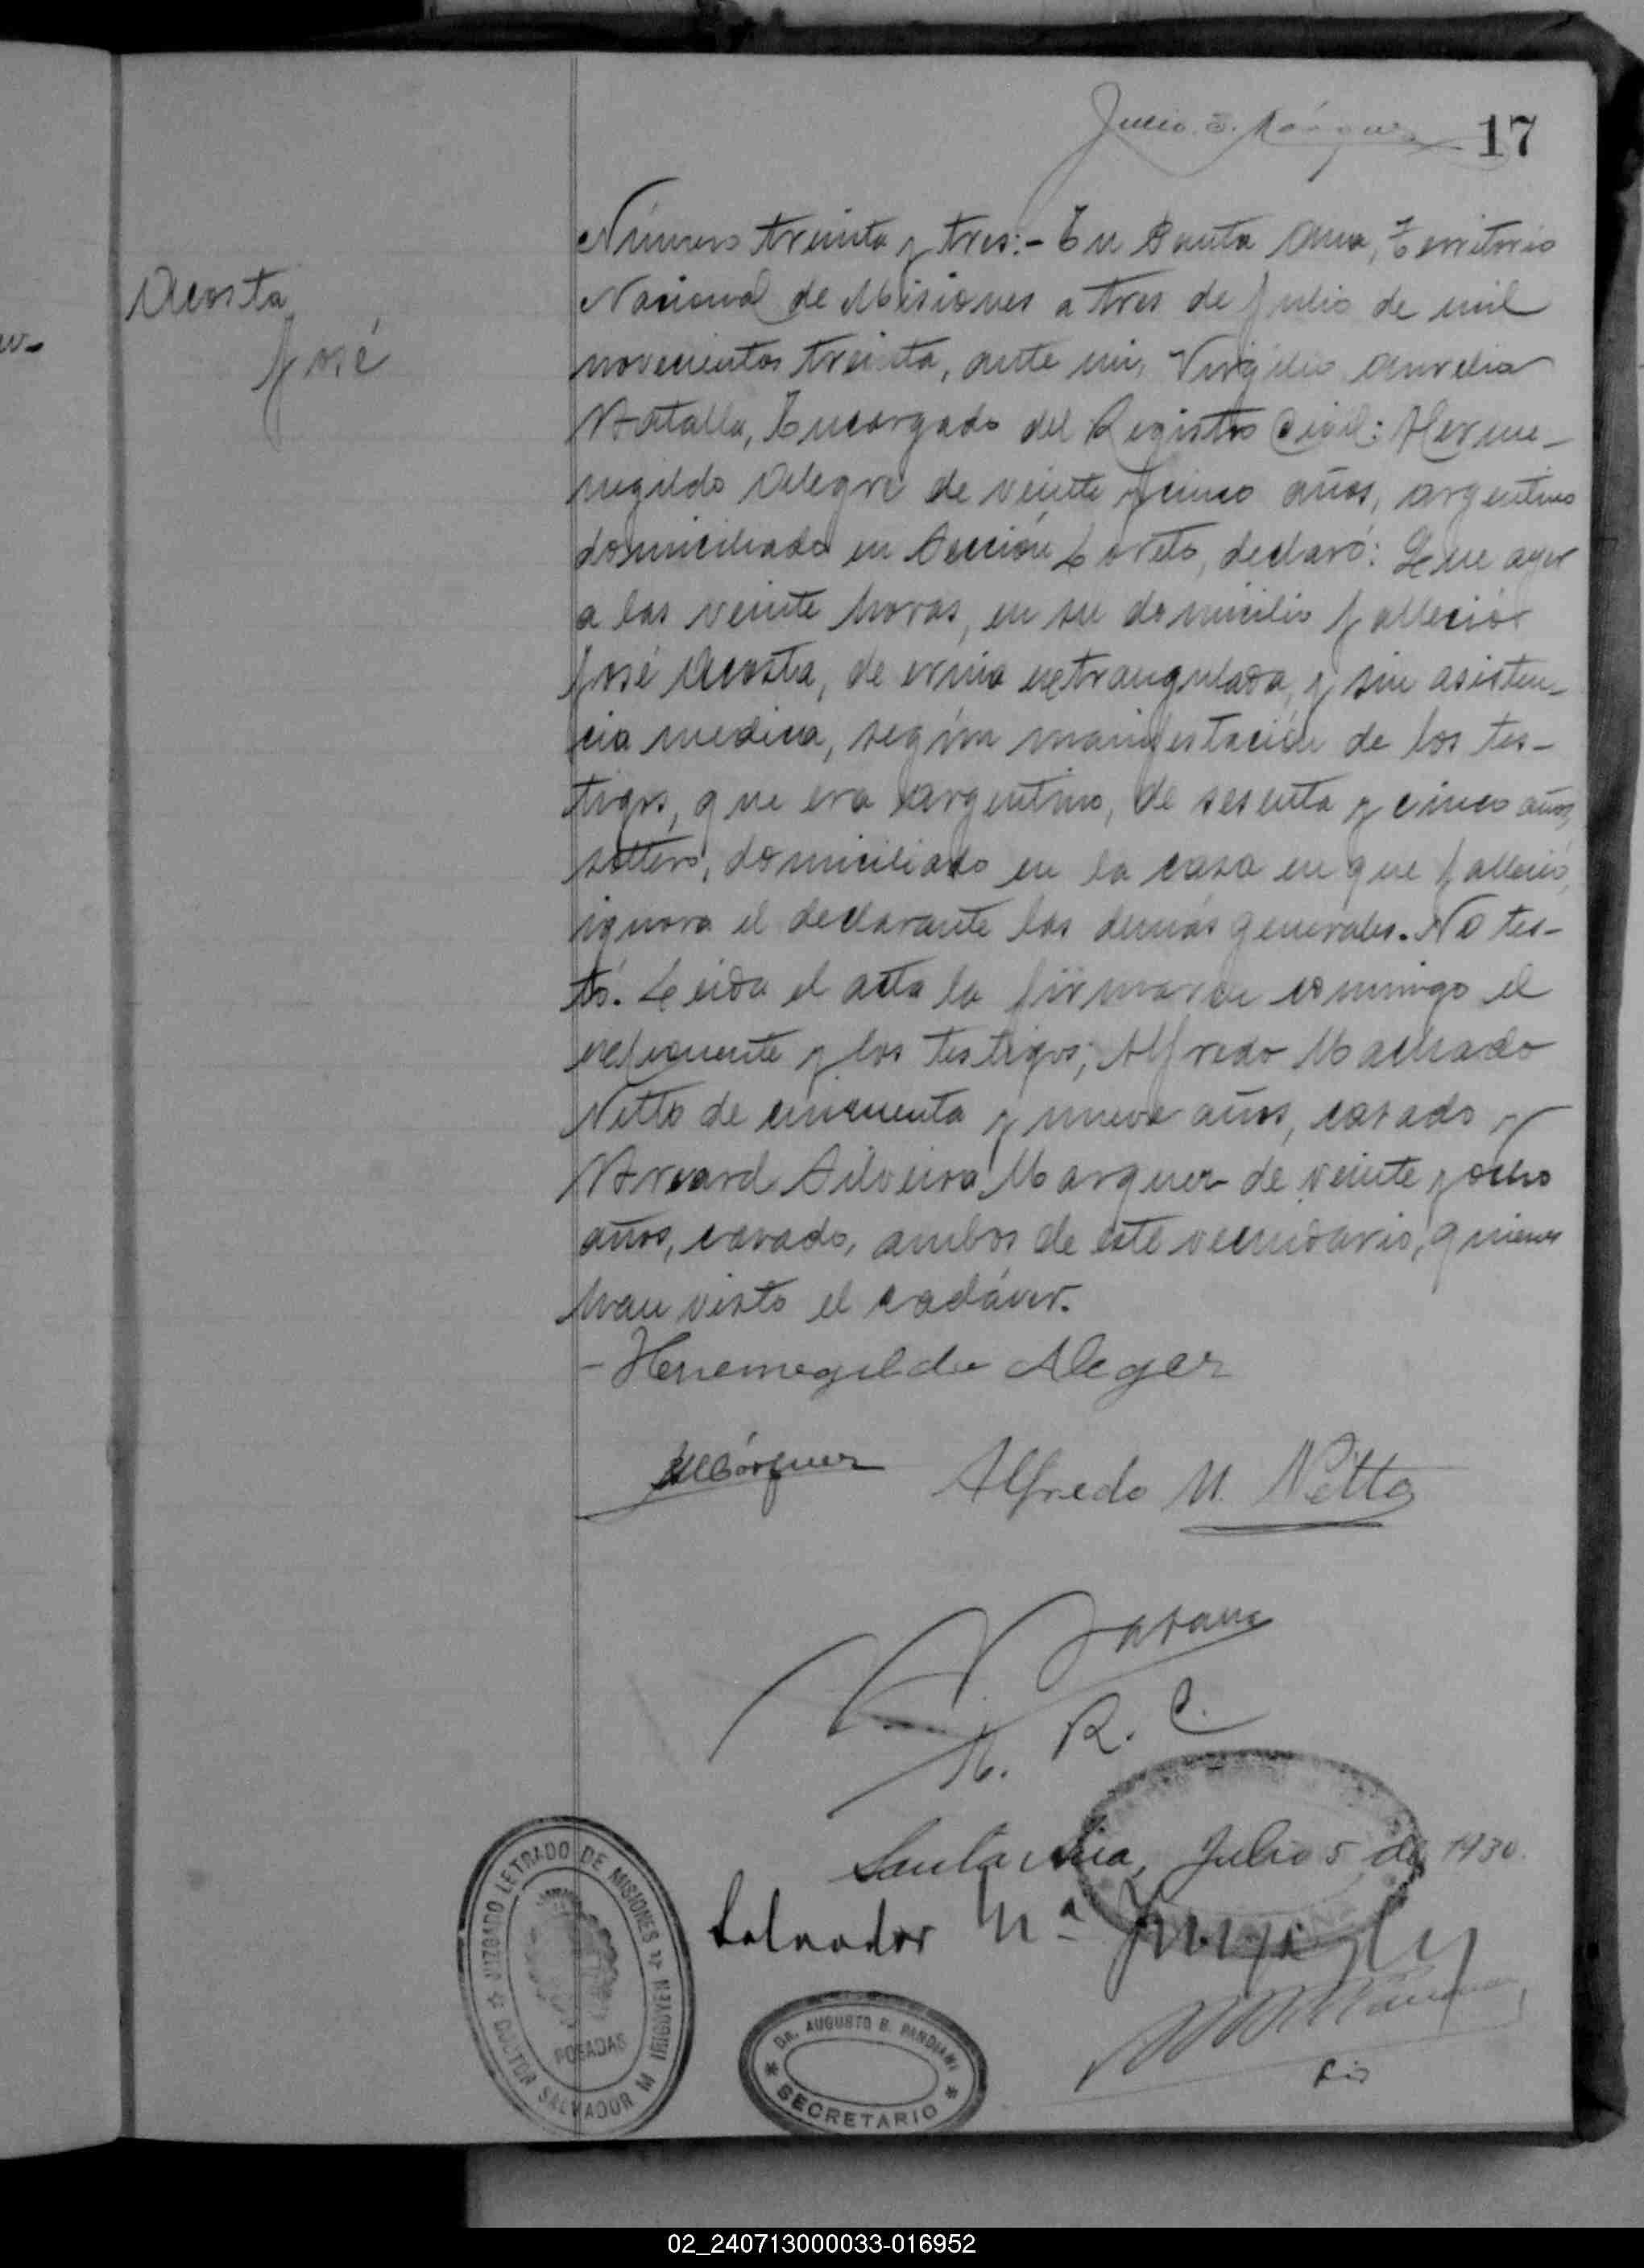 17
Acosta
José
Número treinta y tres:- En Santa Ana, Territorio
Nacional de Misiones a tres de Julio de mil
novecientos treinta, ante mi, Virgilio Aurelio
Batalla, Encargado del Registro Civil: Herme-
negildo Alegre de veinte y cinco años, argentino
domiciliado en Sección Loreto, declaró: Que ayer
a las veinte horas, en su domicilio falleció
José Acosta, de ernia extrangulada, y sin asisten-
cia medica, según manifestación de los tes-
tigos, que era argentino, de sesenta y cinco años,
soltero, domiciliado en la casa en que falleció,
ignora el declarante las demás generales. No tes-
tó. Leida el acta la firmaron conmigo el
exponente y los testigos; Alfredo Machado
Netto de cincuenta y nueve años, casado y
Silveira Marquez de veinte y ocho
años, casado, ambos de este vecindario, quienes
han visto el cadáver.
- Heremegildo Aleger
Márquez Alfredo M. Netto
R. C.
Santa Ana, Julio 5 de 1930.
Salvador Mª
JUZGADO LETRADO DE MISIONES
DOCTOR SALVADOR M IRIGOYEN
POSADAS
DR. AUGUSTO B.
SECRETARIO
02_240713000033-016952